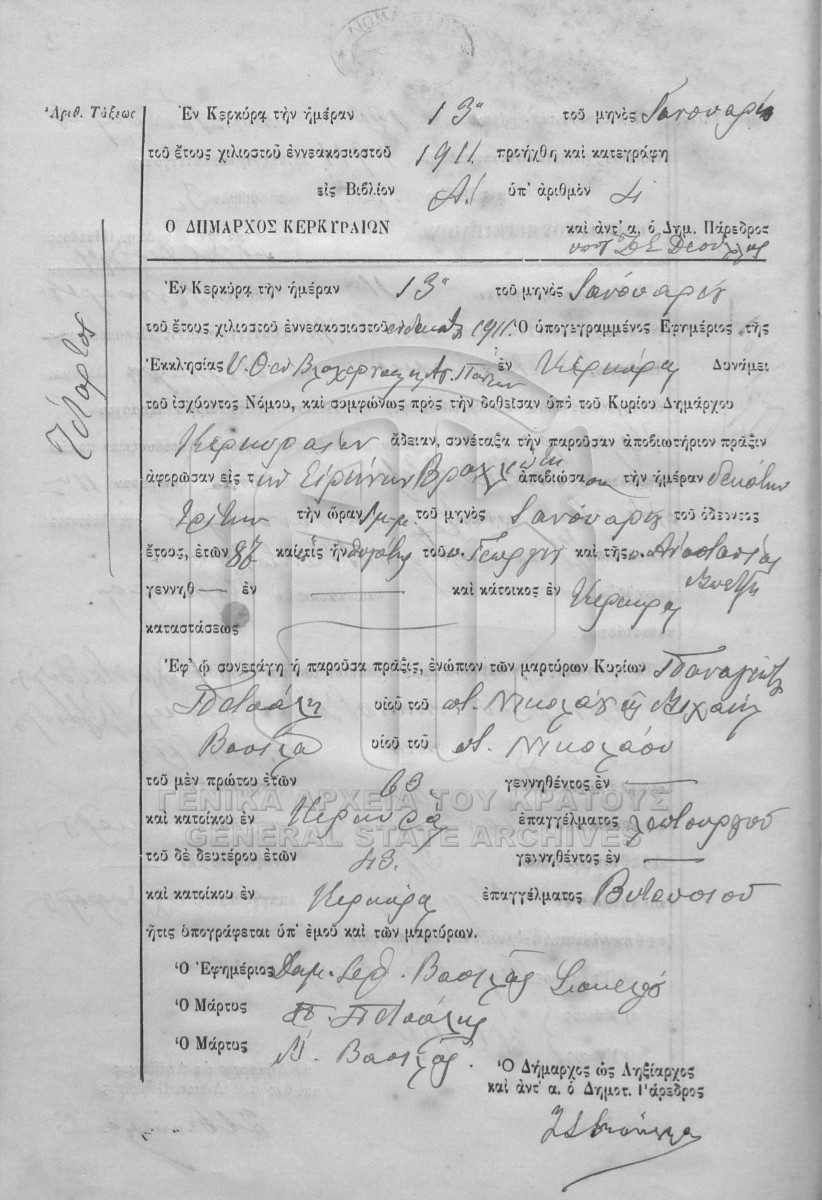 Ἀριθ. Τάξεως
Ἐν Κερκύρᾳ τὴν ἡμέραν 13ῃ τοῦ μηνὸς Ἰανουαρίου
τοῦ ἔτους χιλιοστοῦ ἐννεακοσιοστοῦ 1911 προήχθη καὶ κατεγράφη
εἰς Βιβλίον Α! ὑπ' ἀριθμὸν 4
Ο ΔΗΜΑΡΧΟΣ ΚΕΡΚΥΡΑΙΩΝ καὶ ἀντ' α. ὁ Δημ. Πάρεδρος
Τέταρτος
Ἐν Κερκύρᾳ τὴν ἡμέραν 13ῃ τοῦ μηνὸς Ἰανουαρίου
τοῦ ἔτους χιλιοστοῦ ἐννεακοσιοστοῦ ἑνδεκάτου 1911. Ὁ ὑπογεγραμμένος Ἐφημέριος τῆς
Ἐκκλησίας Υ. Θεου Βλαχερναν ἐν Κερκύρᾳ Δυνάμει
τοῦ ἰσχύοντος Νόμου, καὶ συμφώνως πρὸς τὴν δοθεῖσαν ὑπὸ τοῦ Κυρίου Δημάρχου
Κερκυραίων ἄδειαν, συνέταξα τὴν παροῦσαν ἀποβιωτήριον πρᾶξιν
ἀφορῶσαν εἰς τὴν Εἰρήνην ἀποβιώσασαν τὴν ἡμέραν δεκάτην
τρίτην τὴν ὥραν μ.μ. τοῦ μηνὸς Ἰανουαρίου τοῦ ὁδεύοντος
ἔτους, ἐτῶν καὶ ἥτις ἦν θυγάτηρ τοῦ π. Γεωργίου καὶ τῆς π. Ἀναστασίας
γεννηθ— ἐν — καὶ κάτοικος ἐν Κερκύρᾳ
καταστάσεως —
Ἐφ' ᾧ συνετάγη ἡ παροῦσα πρᾶξις, ἐνώπιον τῶν μαρτύρων Κυρίων Παναγιώτη
Πετσάλη υἱοῦ τοῦ ποτ. Νικολάου καὶ Μιχαὴλ
Βασιλᾶ υἱοῦ τοῦ ποτ. Νικολάου
τοῦ μὲν πρώτου ἐτῶν 63. γεννηθέντος ἐν —
ΓΕΝΙΚΑ ΑΡΧΕΙΑ ΤΟΥ ΚΡΑΤΟΥΣ
καὶ κατοίκου ἐν Κερκύρᾳ ἐπαγγέλματος λεπτουργοῦ
GENERAL STATE ARCHIVES
τοῦ δὲ δευτέρου ἐτῶν 43. γεννηθέντος ἐν —
καὶ κατοίκου ἐν Κερκύρᾳ ἐπαγγέλματος
ἥτις ὑπογράφεται ὑπ' ἐμοῦ καὶ τῶν μαρτύρων.
Ὁ Ἐφημέριος Βασιλᾶς
Ὁ Μάρτυς Π. Πετσάλης
Ὁ Μάρτυς Μ. Βασιλᾶς.
Ὁ Δήμαρχος ὡς Ληξίαρχος
καὶ ἀντ' α. ὁ Δημοτ. Πάρεδρος